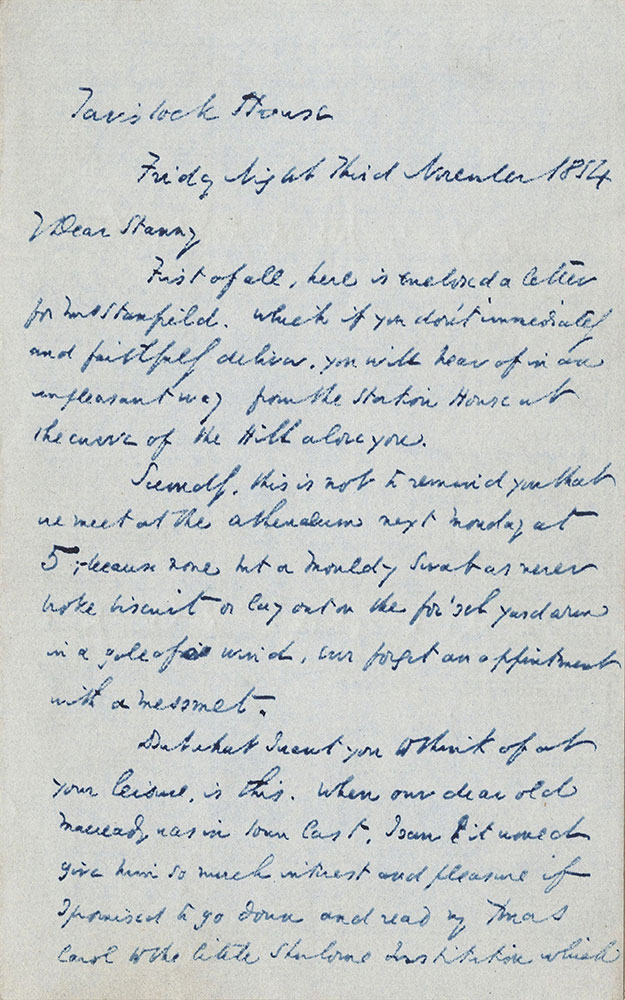 Tavistock House
Friday Night Third November 1854
My Dear Stanny
First of all, here is enclosed a letter
for Mrs Stanfield. Which if you don't immediately
and faithfully deliver, you will hear of in an
unpleasant way from the Station House at
the curve of the Hill above you.
Secondly, this is not to remind you that
we meet at the Athenaeum next Monday at
5, because none but a mouldy Swab as never
broke biscuit or lay out on the fo'sel yardarm
in a gale of wind, ever forget an appintment
with a messmet.
But what I want you to think of at
your leisure, is this. When our dear old
Macready was in Town last, I saw it would
give him so much interest and pleasure if
I promised to go down and read my Xmas
Carol to the little Sherborne Institution which